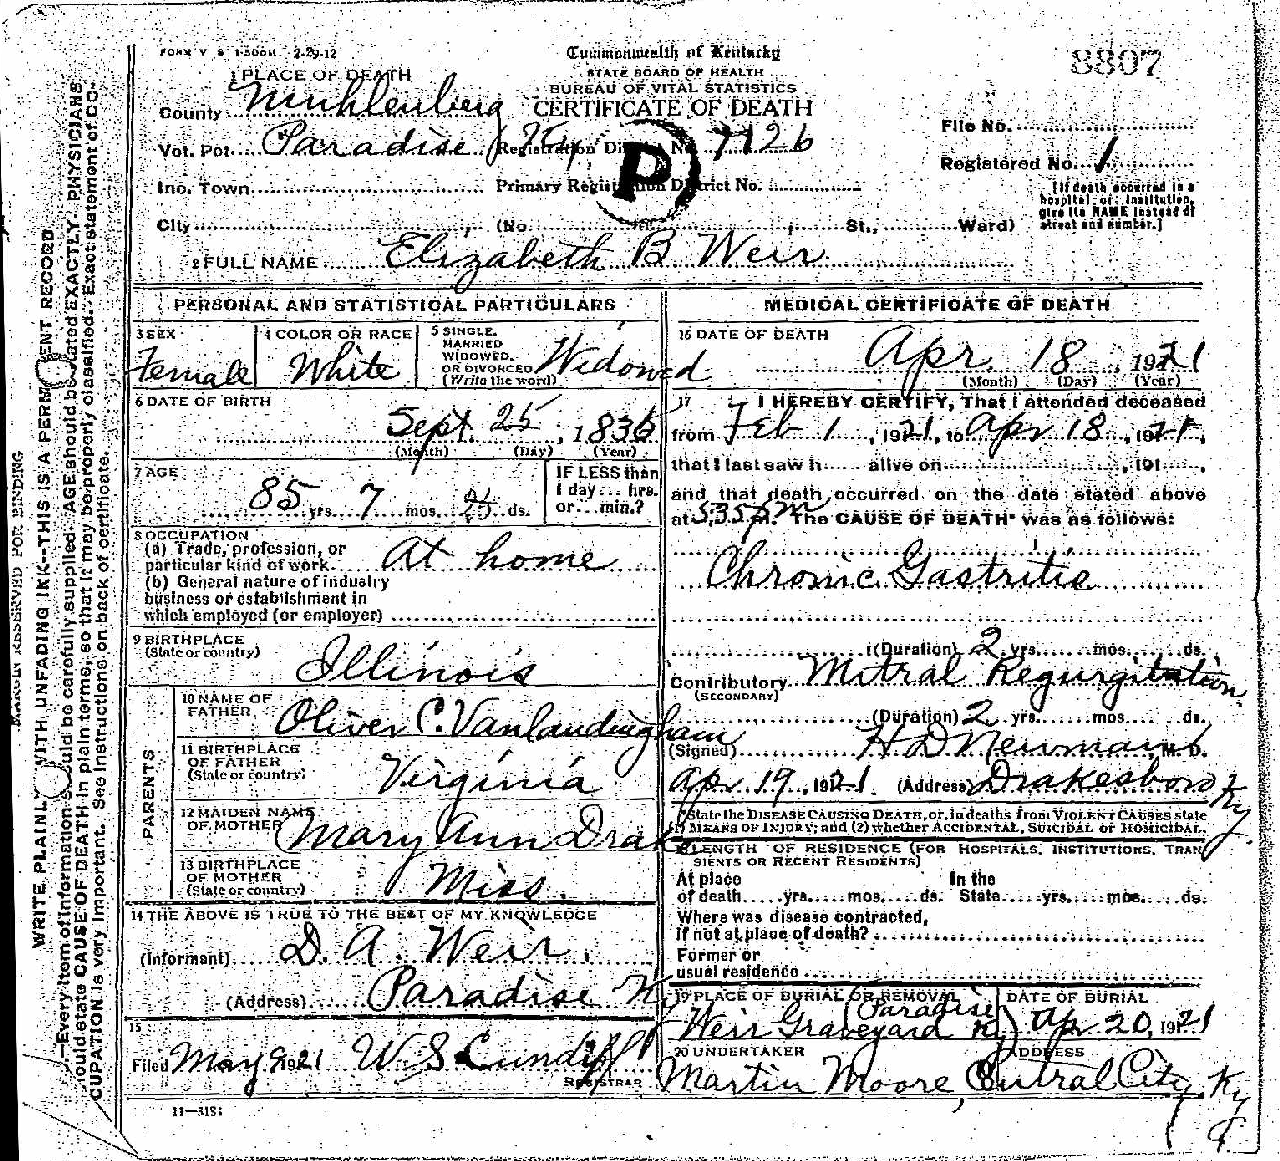 FORM V S 1-500M 2-29-12
Commonwealth of Kentucky
8807
STATE BOARD OF HEALTH
BUREAU OF VITAL STATISTICS
CERTIFICATE OF DEATH
1 PLACE OF DEATH
County Muhlenberg
Vot. Pct. Paradise Ky Registration District No. 7126
File No.
Inc. Town Primary Registration District No.
Registered No. 1
P
City (No. St., Ward)
[If death occurred in a
hospital or institution,
give its NAME instead of
street and number.]
2 FULL NAME Elizabeth B Weir
PERSONAL AND STATISTICAL PARTICULARS
3 SEX
Female
4 COLOR OR RACE
White
5 SINGLE,
MARRIED
WIDOWED,
OR DIVORCED
(Write the word)
Widowed
6 DATE OF BIRTH
Sept. 25, 1835
(Month) (Day) (Year)
7 AGE
85 yrs. 7 mos. 25 ds.
IF LESS than
1 day... hrs.
or... min.?
8 OCCUPATION
(a) Trade, profession, or
particular kind of work At home
(b) General nature of industry
business or establishment in
which employed (or employer)
9 BIRTHPLACE
(State or country)
Illinois
PARENTS
10 NAME OF
FATHER
Oliver C. Vanlandingham
11 BIRTHPLACE
OF FATHER
(State or country)
Virginia
12 MAIDEN NAME
OF MOTHER
Mary Ann Drake
13 BIRTHPLACE
OF MOTHER
(State or country)
Miss.
14 THE ABOVE IS TRUE TO THE BEST OF MY KNOWLEDGE
(Informant) D. A. Weir.
(Address) Paradise Ky
15
Filed May 9 1921 W. S. Cundiff
REGISTRAR
11-3184
MEDICAL CERTIFICATE OF DEATH
16 DATE OF DEATH
Apr 18, 1921
(Month) (Day) (Year)
17 I HEREBY CERTIFY, That I attended deceased
from Feb 1, 1921, to Apr 18, 1921,
that I last saw h alive on , 191 ,
and that death occurred on the date stated above
at 5:35 P M. The CAUSE OF DEATH* was as follows:
Chronic Gastritis
(Duration) 2 yrs. mos. ds.
Contributory Mitral Regurgitation
(SECONDARY)
(Duration) 2 yrs. mos. ds.
(Signed) H D Newman M. D.
Apr 19, 1921 (Address) Drakesboro Ky
*State the DISEASE CAUSING DEATH, or, in deaths from VIOLENT CAUSES state
(1) MEANS OF INJURY; and (2) whether ACCIDENTAL, SUICIDAL or HOMICIDAL.
18 LENGTH OF RESIDENCE (FOR HOSPITALS, INSTITUTIONS, TRAN
SIENTS OR RECENT RESIDENTS)
At place In the
of death yrs. mos. ds. State yrs. mos. ds.
Where was disease contracted,
if not at place of death?
Former or
usual residence
19 PLACE OF BURIAL OR REMOVAL
Weir Graveyard (Paradise Ky)
DATE OF BURIAL
Apr 20, 1921
20 UNDERTAKER
Martin Moore,
ADDRESS
Central City, Ky
MARGIN RESERVED FOR BINDING
WRITE PLAINLY WITH UNFADING INK—THIS IS A PERMANENT RECORD
—Every item of information should be carefully supplied. AGE should be stated EXACTLY. PHYSICIANS
should state CAUSE OF DEATH in plain terms, so that it may be properly classified. Exact statement of OC-
CUPATION is very important. See instructions on back of certificate.